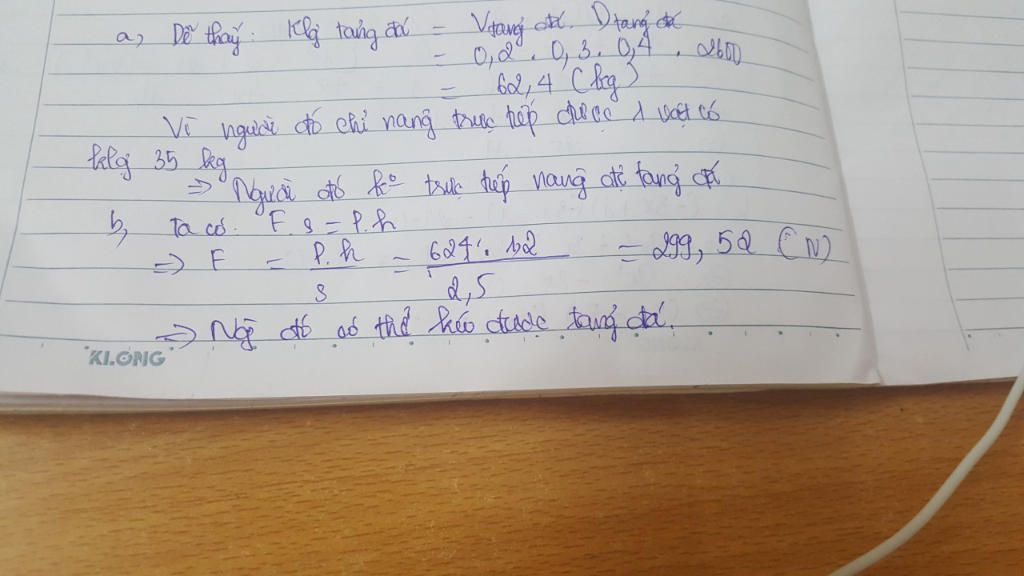 a, Dễ thấy: Klg tảng đá = Vtảng đá . Dtảng đá
= 0,2 . 0,3 . 0,4 . 2600
= 62,4 (kg)
Vì người đó chỉ nâng trực tiếp được 1 vật có
klg 35 kg
=> Người đó ko trực tiếp nâng đc tảng đá
b, Ta có: F.s = P.h
=> F = P.h / s = 624 . 1,2 / 2,5 = 299,52 (N)
=> Ng đó có thể kéo được tảng đá.
KLONG